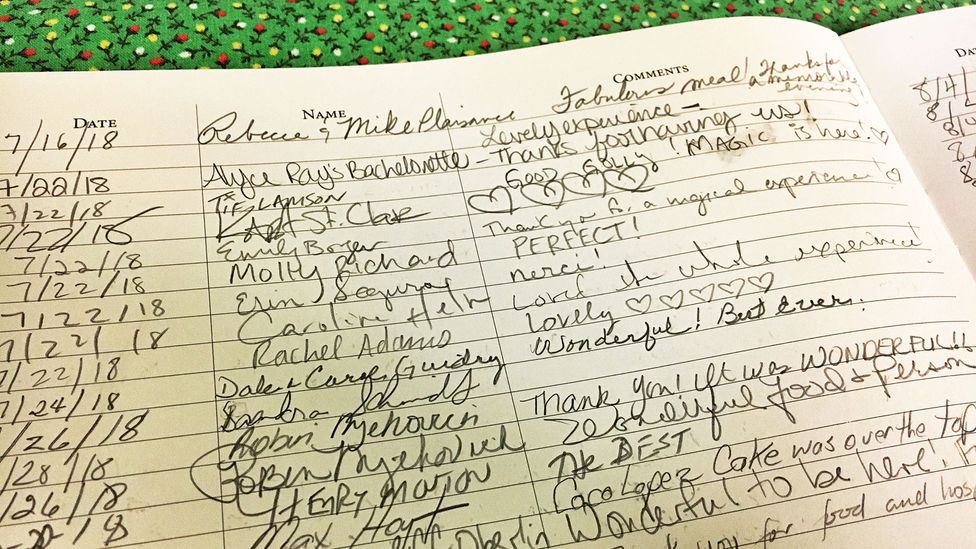 DATE NAME COMMENTS
7/16/18 Rebecca & Mike Plaisance Fabulous meal! Thanks for a memorable evening
Lovely experience –
7/22/18 Alyce Ray's Bachelorette – Thanks for having us!
7/22/18 TIF LAMSON GOOD GOLLY! MAGIC is here! ♡
7/22/18 St. Clair ♡♡♡♡
7/22/18 Emily Thank you for a magical experience! ♡
7/22/18 Molly Richard PERFECT!
7/22/18 Erin Segura merci!
7/22/18 Caroline Helm Loved the whole experience!
7/22/18 Rachel Adams Lovely ♡♡♡♡♡
Dale & Guidry Wonderful! Best Ever.
7/24/18 Sandra Schmidt
7/26/18 Robin Thank You! It was WONDERFUL!!
28/18 ROBIN Beautiful food & person
26/18 HENRY THE BEST
18 Max Coco Lopez Cake was over the top
Oberlin Wonderful to be here!
you for food and hos
8/4/
8/